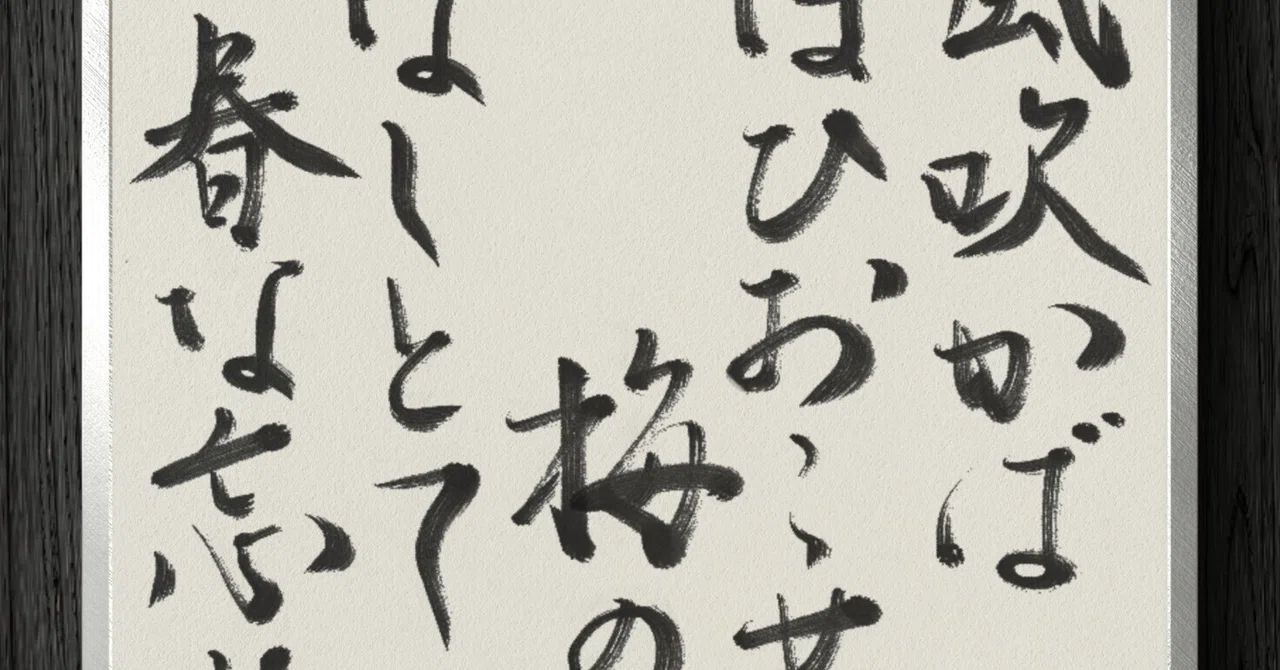 風吹かば
ほひおこせ
梅の
なしとて
春な忘